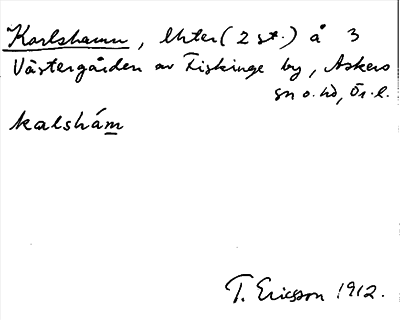 Karlshamn, lhter (2 st.) å 3
Västergården av Fiskinge by, Askers
sn o. hd, Ör. l.
kalshám
T. Ericsson 1912.